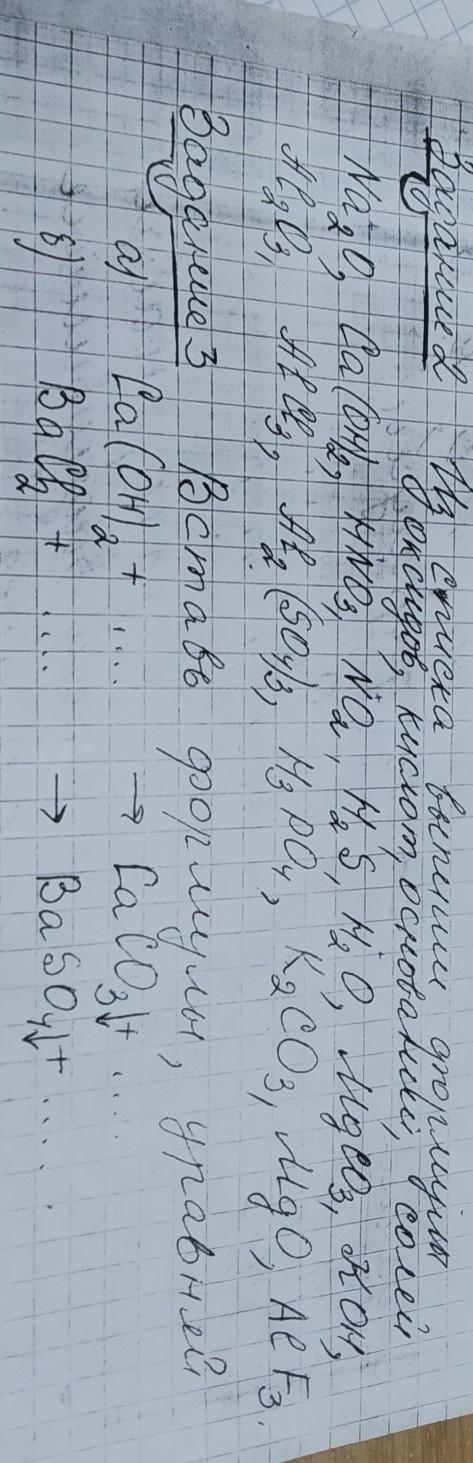 Задание 2 Из списка выпиши формулы
оксидов, кислот, оснований, солей
Na₂O, Ca(OH)₂, HNO₃, NO₂, H₂S, H₂O, MgCO₃, KOH,
Al₂O₃, AlCl₃, Al₂(SO₄)₃, H₃PO₄, K₂CO₃, MgO, AlF₃.
Задание 3 Вставь формулы, уравняй
а) Ca(OH)₂ + .... → CaCO₃↓ + ....
б) BaCl₂ + .... → BaSO₄↓ + ....